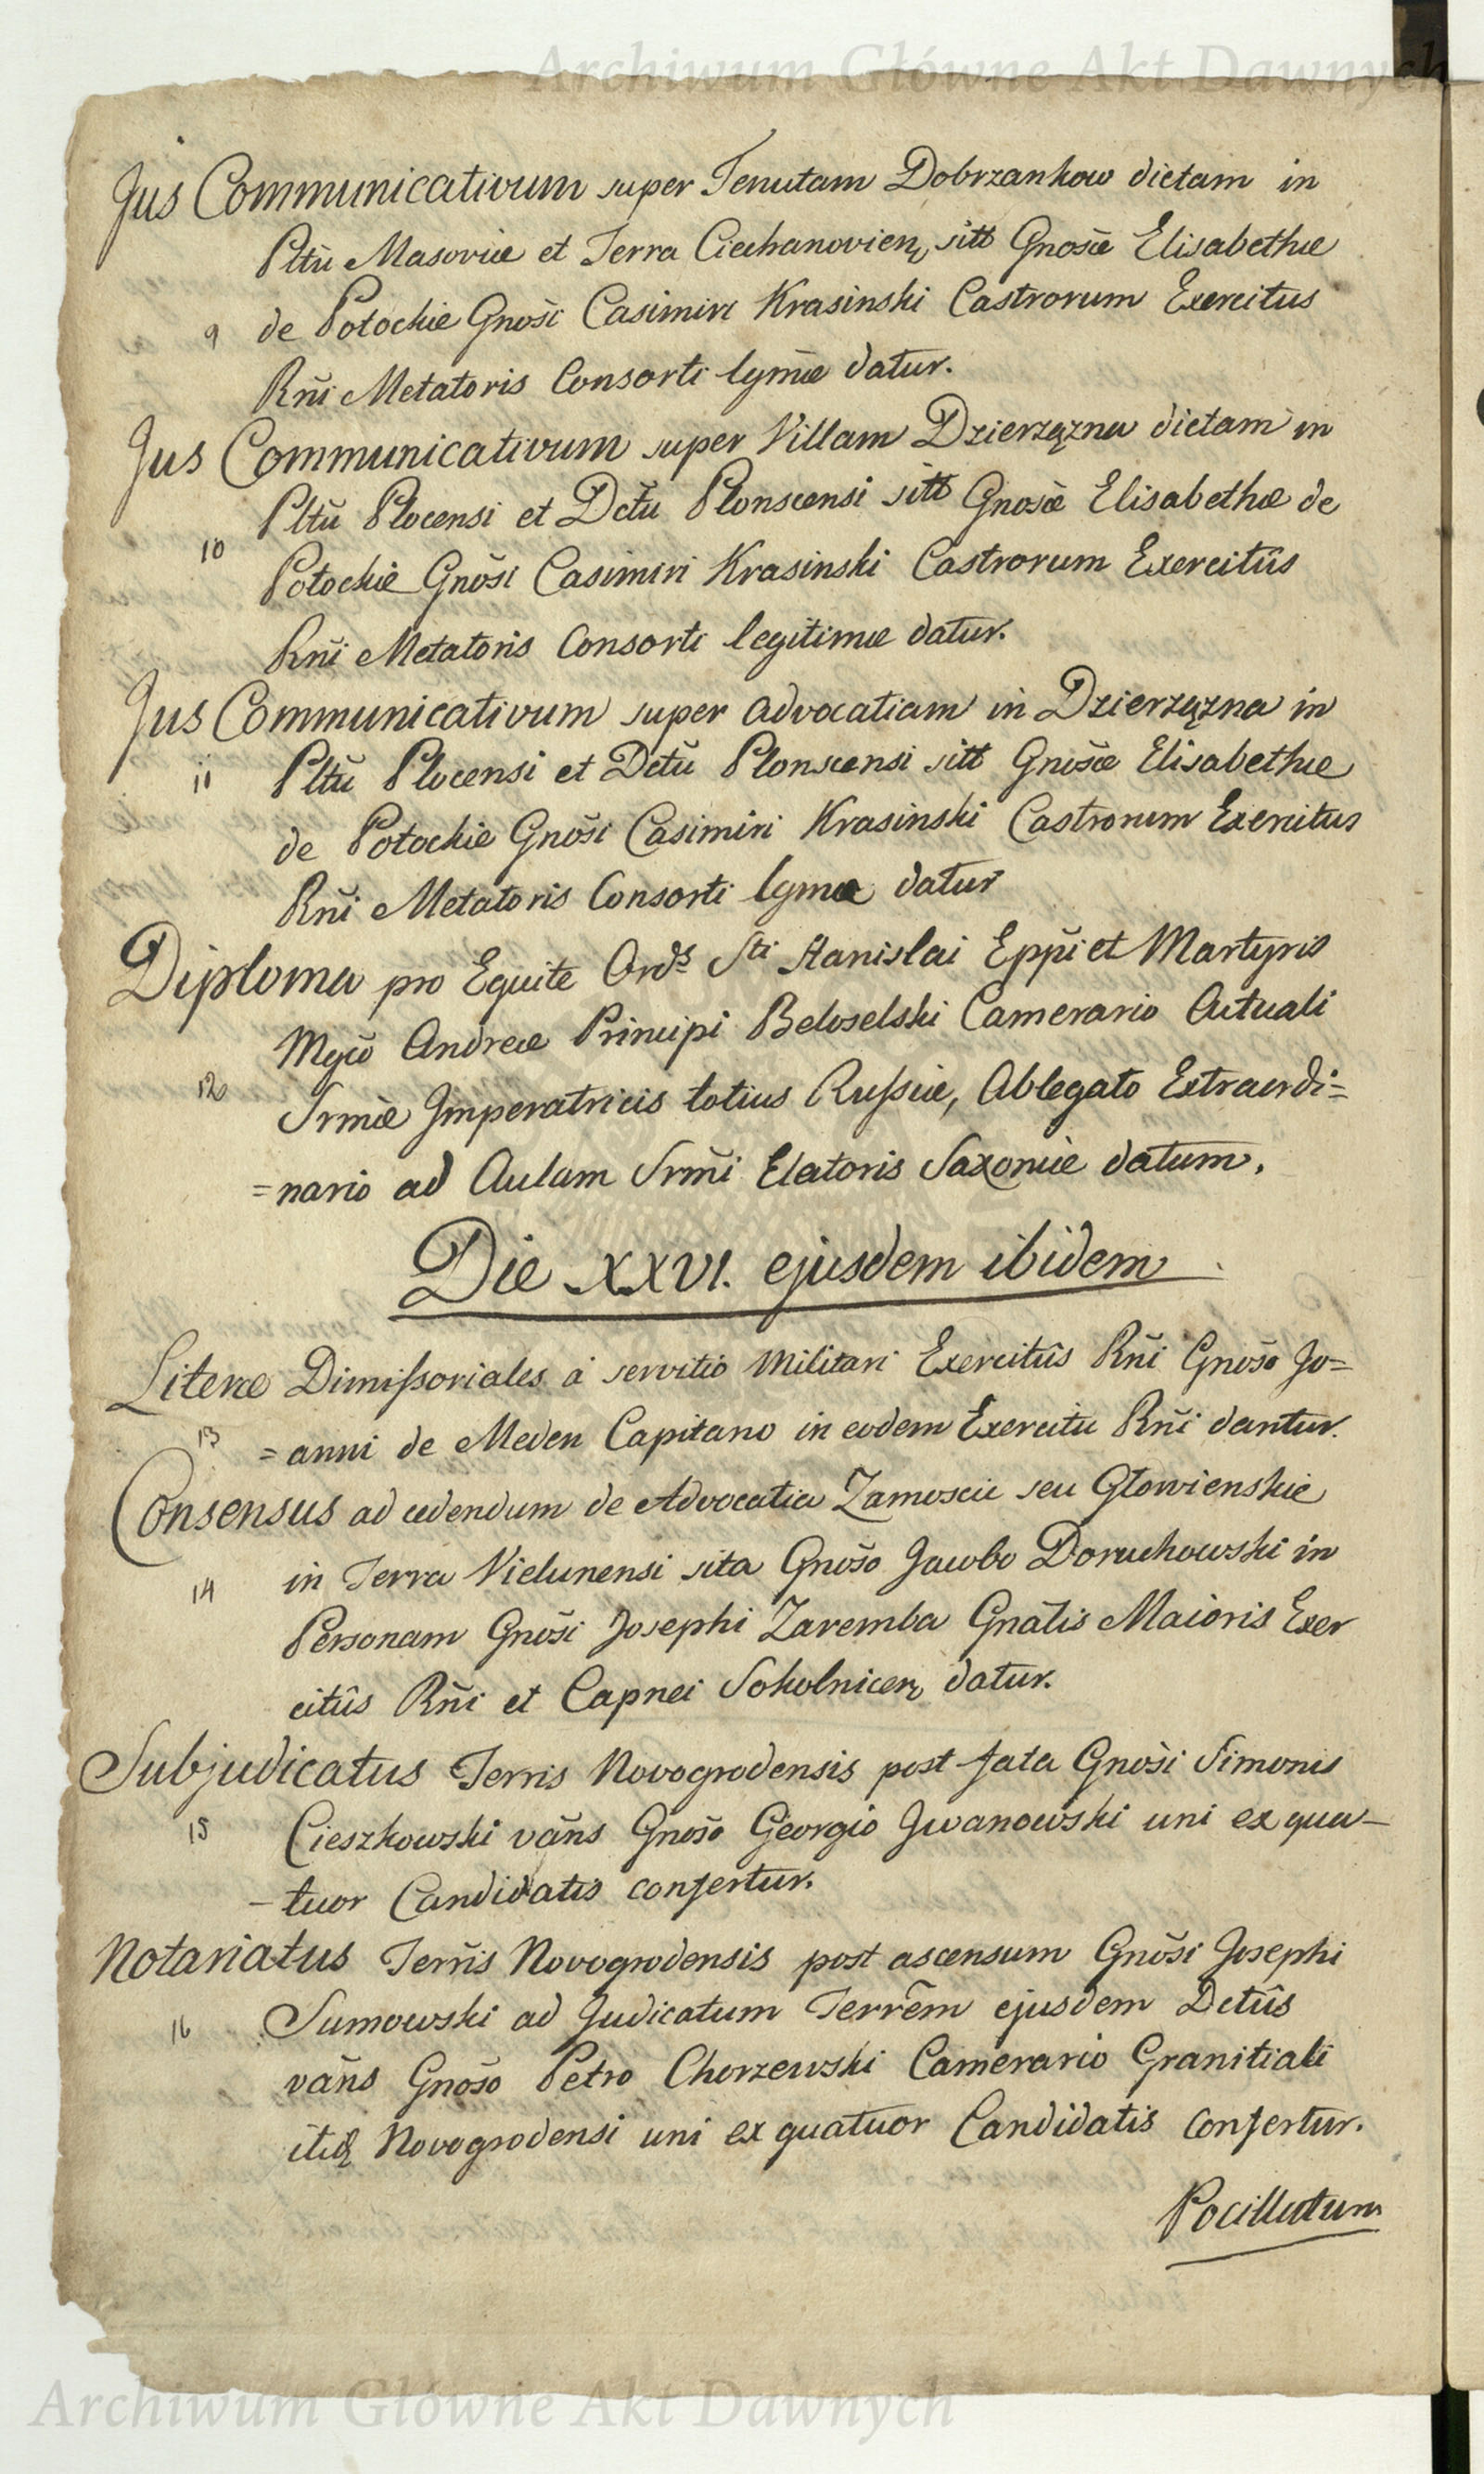 Archiwum Główne Akt Dawnych
Jus Communicativum super Tenutam Dobrzankow dictam in
Pltũ Masoviæ et Terra Ciechanovien, sitt Gnosæ Elisabethæ
9 de Potockie Gnosi Casimiri Krasinski Castrorum Exercitus
Rñi Metatoris Consorti lgmæ datur.
Jus Communicativum super Villam Dzierzązna dictam in
Pltũ Plocensi et Dctũ Plonscensi sitt Gnosæ Elisabethæ de
10 Potockie Gnosi Casimiri Krasinski Castrorum Exercitûs
Rñi Metatoris Consorti legitimæ datur.
Jus Communicativum super advocatiam in Dzierzązna in
11 Pltũ Plocensi et Dctũ Plonscensi sitt Gnosæ Elisabethæ
de Potockie Gnosi Casimiri Krasinski Castrorum Exercitus
Rñi Metatoris Consorti lgmæ datur
Diploma pro Equite Ords Sti Stanislai Eppi et Martyris
Mgcõ Andreæ Principi Beloselski Camerario Actuali
12 Srmæ Imperatricis totius Russiæ, Ablegato Extraordi=
=nario ad Aulam Srmi Electoris Saxoniæ datum.
Die XXVI. ejusdem ibidem
Literæ Dimissoriales á servitio Militari Exercitûs Rñi Gnoso Jo=
13 =anni de Meden Capitano in eodem Exercitu Rñi dantur.
Consensus ad cedendum de Advocatia Zamoscie seu Głowienskie
14 in Terra Vielunensi sita Gnoso Jacobo Doruchowski in
Personam Gnosi Josephi Zaremba Gnãlis Maioris Exer
citûs Rñi et Capnei Sokolnicen, datur.
Subjudicatus Terris Novogrodensis post fata Gnosi Simonis
15 Cieszkowski vãns Gnoso Georgio Iwanowski uni ex qua-
-tuor Candidatis confertur.
Notariatus Terris Novogrodensis post ascensum Gnosi Josephi
16 Sumowski ad Judicatum Terrẽm ejusdem Dctûs
vãns Gnoso Petro Chorzewski Camerario Granitiali
itidẽ Novogrodensi uni ex quatuor Candidatis confertur.
Pocillatum
Archiwum Główne Akt Dawnych